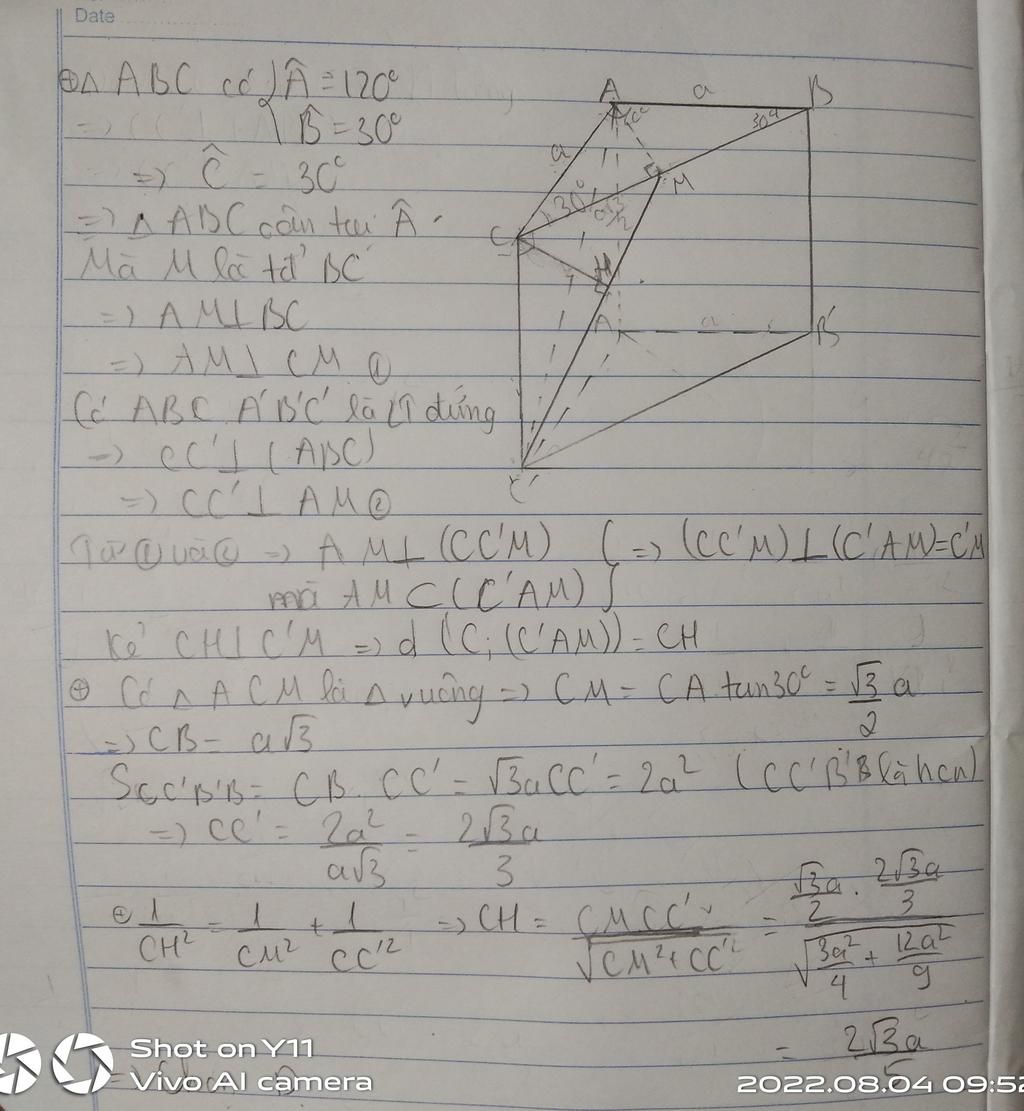 Date
⊕ △ ABC có { Â = 120°
B̂ = 30°
=> Ĉ = 30°
=> △ ABC cân tại Â
Mà M là tđ BC
=> AM ⊥ BC
=> AM ⊥ CM ①
Có ABC A'B'C' là LT đứng
=> CC' ⊥ (ABC)
=> CC' ⊥ AM ②
Từ ① và ② => AM ⊥ (CC'M) } => (CC'M) ⊥ (C'AM) = C'M
mà AM ⊂ (C'AM)
Kẻ CH ⊥ C'M => d (C; (C'AM)) = CH
⊕ Có △ ACM là △ vuông => CM = CA tan30° = √3/2 a
=> CB = a√3
SCC'B'B = CB. CC' = √3aCC' = 2a² (CC'B'B là hcn)
=> CC' = 2a²/a√3 = 2√3a/3
⊕ 1/CH² = 1/CM² + 1/CC'² => CH = CMCC'/√(CM²+CC'²) = (√3a/2 . 2√3a/3)/√(3a²/4 + 12a²/9)
= 2√3a/5
A
a
B
30°
a
M
30°
C
H
A'
a
B'
C'
Shot on Y11
Vivo AI camera
2022.08.04 09:52